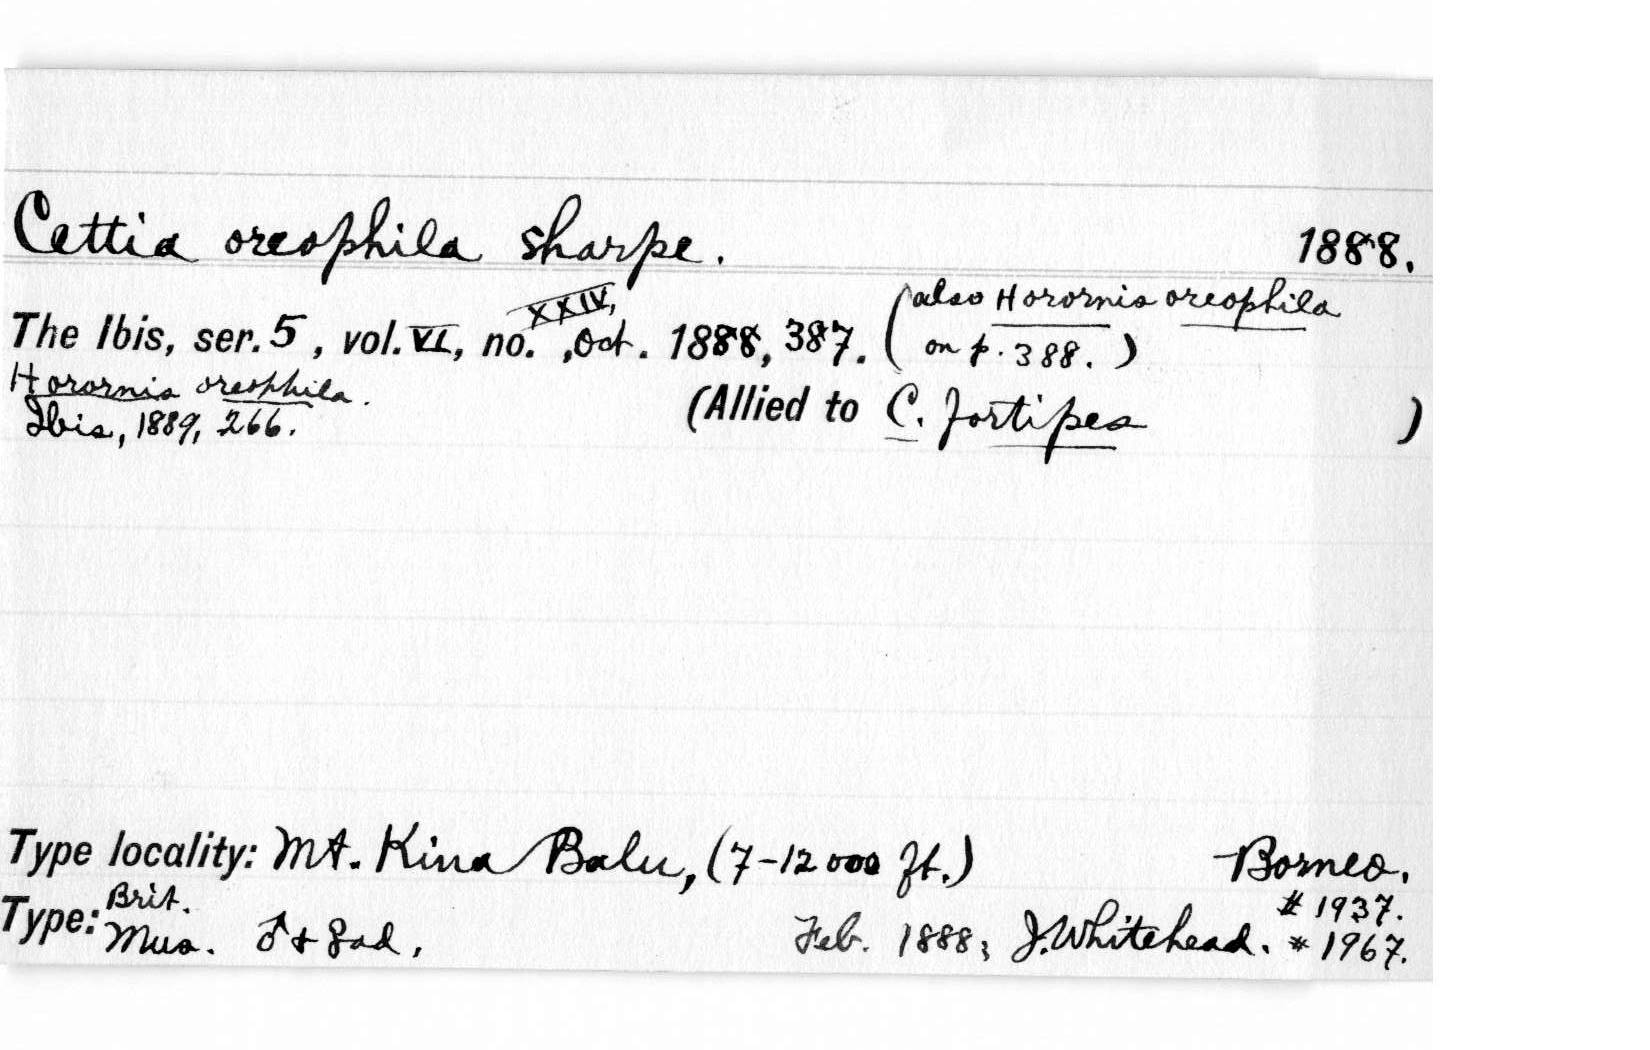 Cettia oreophila sharpe. 1888.
The Ibis, ser. 5, vol. VI, no. XXIV, , Oct. 1888, 387. (also Horornis oreophila
on p. 388. )
Horornis oreophila.
Ibis, 1889, 266.
(Allied to C. fortipes )
Type locality: Mt. Kina Balu, (7-12000 ft.) Borneo.
Type: Brit. Mus. ♂ + ♀ ad, Feb. 1888; J. Whitehead. # 1937.
# 1967.